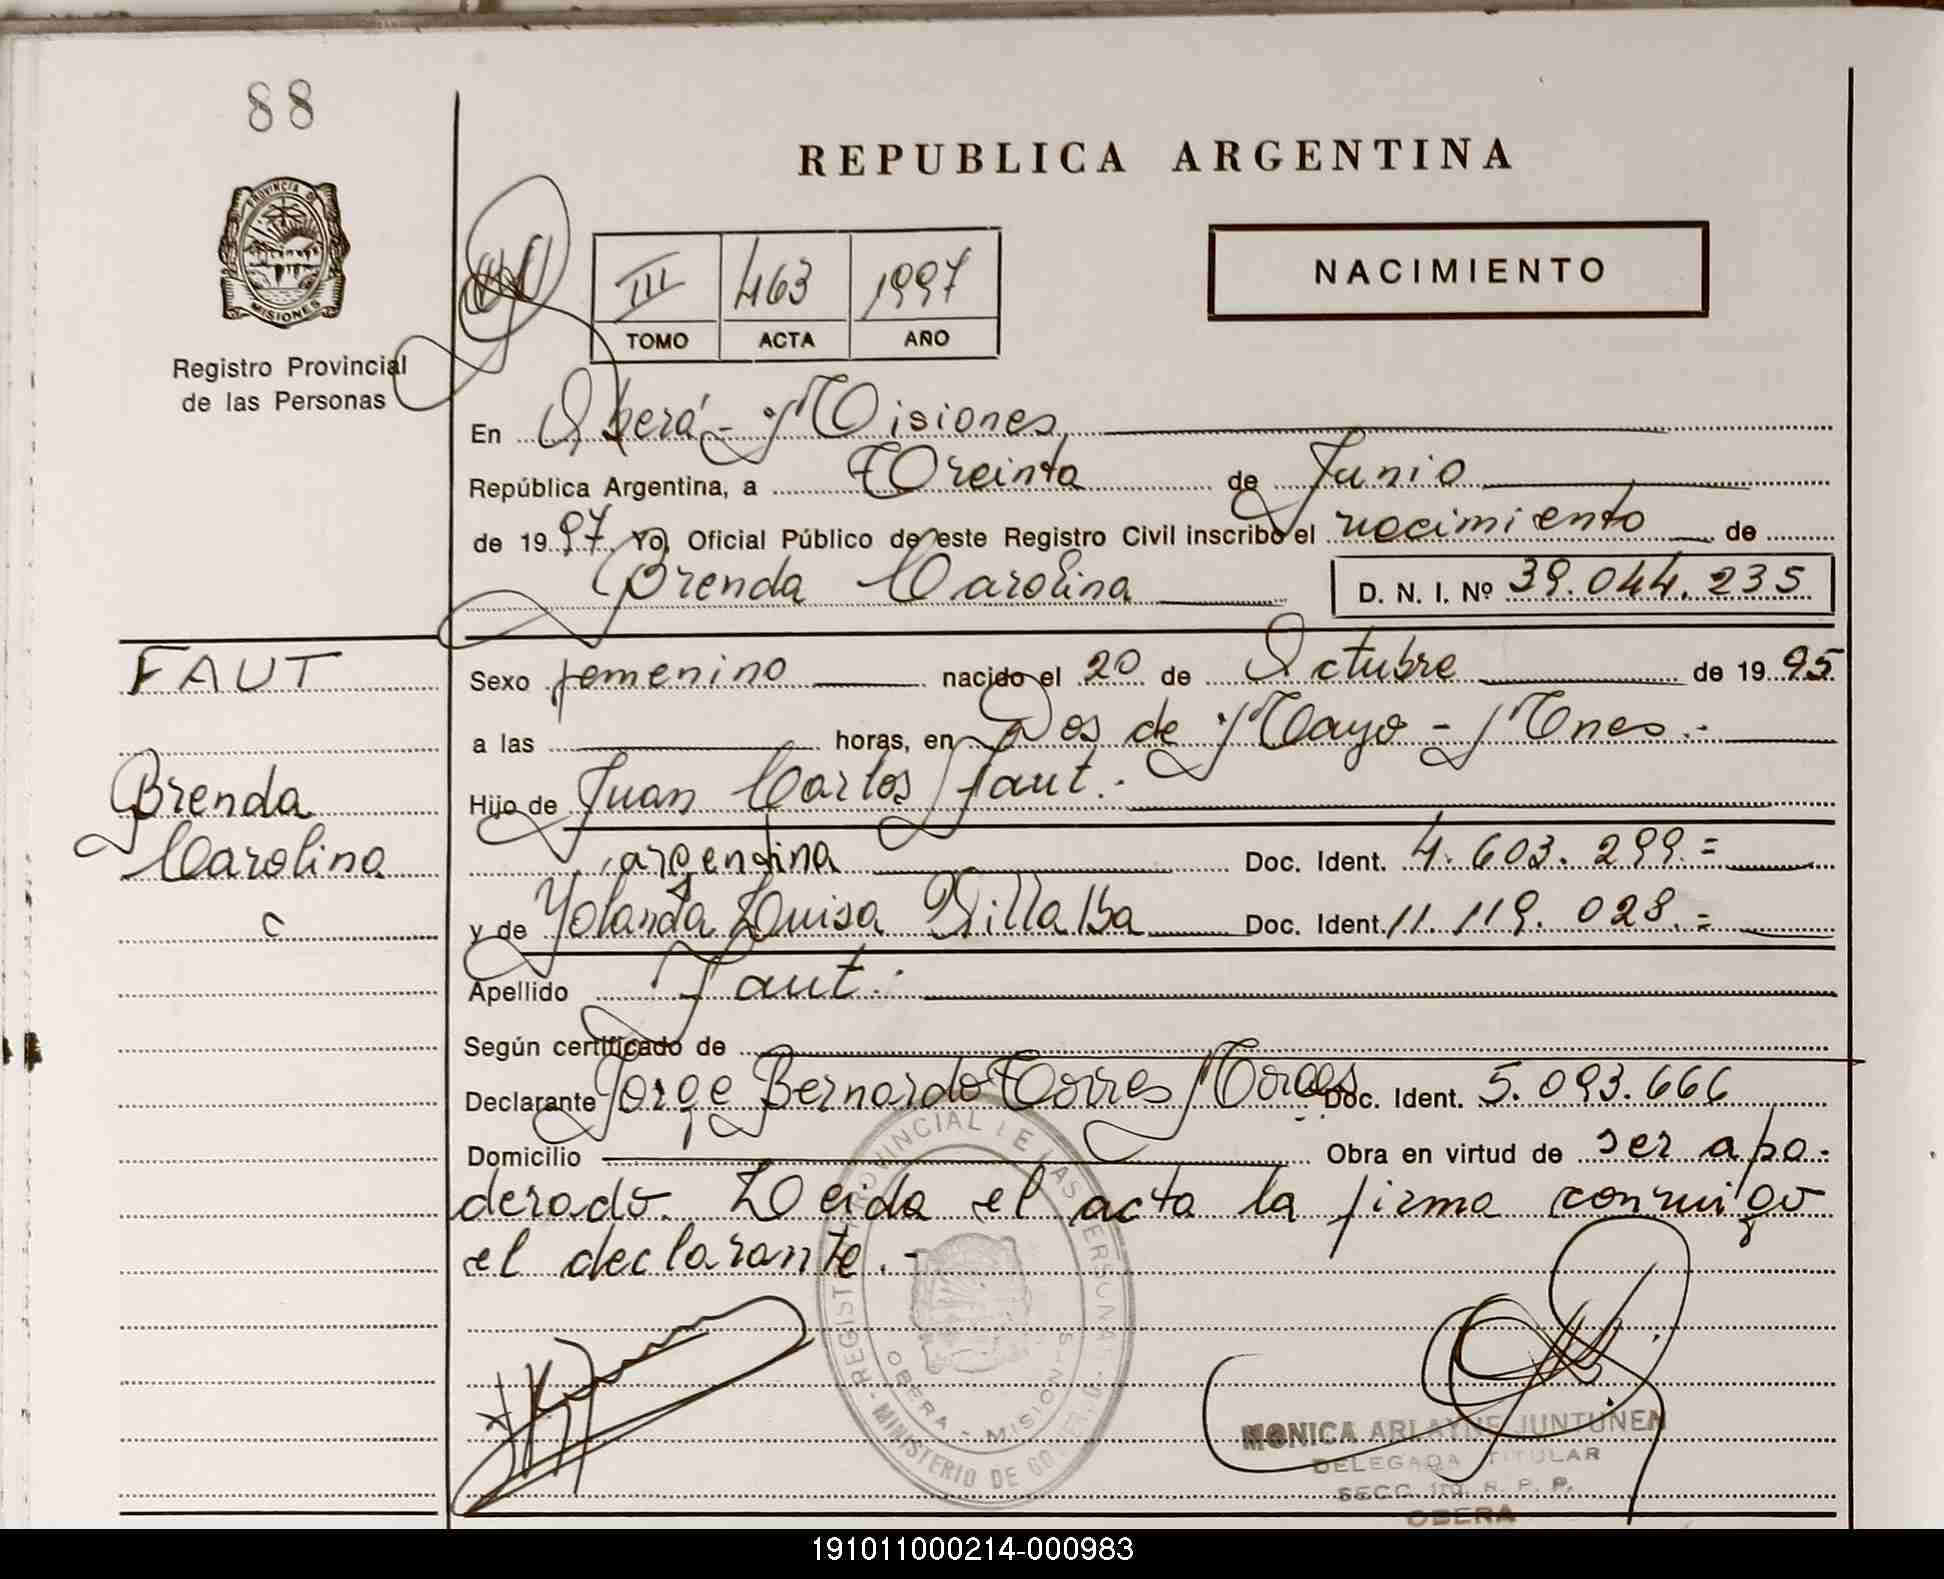 88
REPUBLICA ARGENTINA
PROVINCIA D
MISIONES
Registro Provincial
de las Personas
III 463 1997
TOMO ACTA AÑO
NACIMIENTO
En Oberá - Misiones
República Argentina, a Treinta de Junio
de 1997 Yo, Oficial Público de este Registro Civil inscribo el nacimiento de
Brenda Carolina D. N. I. Nº 39.044.235
FAUT
Brenda
Carolina
c
Sexo femenino nacido el 20 de Octubre de 1995
a las horas, en Dos de Mayo - Mnes.-
Hijo de Juan Carlos Faut.-
argentina Doc. Ident. 4.603.299.=
y de Yolanda Luisa Villalba Doc. Ident. 11.119.028.=
Apellido Faut.-
Según certificado de
Declarante Jorge Bernardo Torres Doc. Ident. 5.093.666
Domicilio Obra en virtud de ser apo-
derado. Leida el acta la firma conmigo
el declarante.-
REGISTRO PROVINCIAL DE LAS PERSONAS
OBERA - MISIONES
MINISTERIO DE GO
MONICA ARLAYNE JUNTUNEN
DELEGADA TITULAR
SECC. R. P. P.
OBERA
191011000214-000983